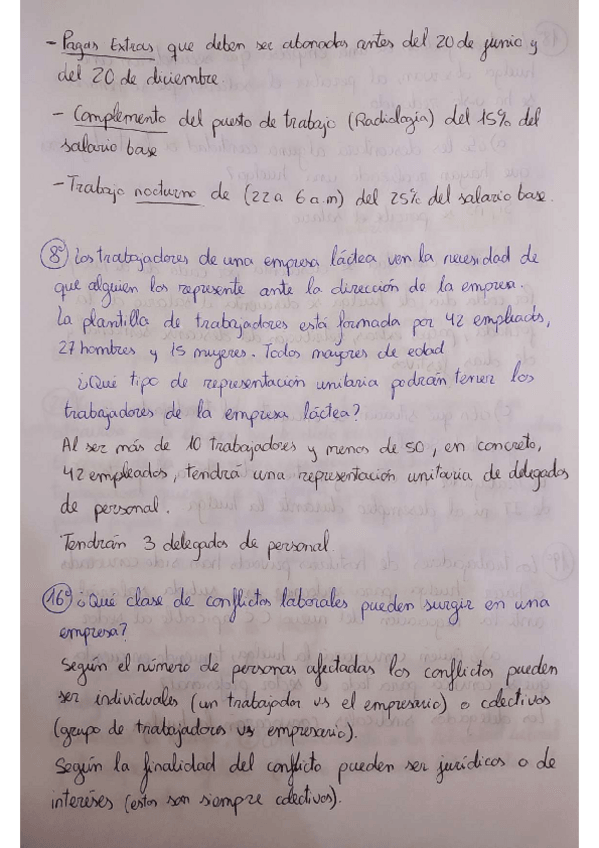 - Pagas Extras que deben ser abonadas antes del 20 de junio y
del 20 de diciembre
- Complemento del puesto de trabajo (Radiología) del 15% del
salario base
- Trabajo nocturno de (22 a 6 a.m) del 25% del salario base.
8º Los trabajadores de una empresa láctea ven la necesidad de
que alguien los represente ante la dirección de la empresa.
La plantilla de trabajadores está formada por 42 empleados,
27 hombres y 15 mujeres. Todos mayores de edad
¿Qué tipo de representación unitaria podrán tener los
trabajadores de la empresa láctea?
Al ser más de 10 trabajadores y menos de 50, en concreto,
42 empleados, tendrá una representación unitaria de delegados
de personal.
Tendrán 3 delegados de personal
16º ¿Qué clase de conflictos laborales pueden surgir en una
empresa?
Según el número de personas afectadas los conflictos pueden
ser individuales (un trabajador vs el empresario) o colectivos
(grupo de trabajadores vs empresario).
Según la finalidad del conflicto pueden ser jurídicos o de
intereses (estos son siempre colectivos).